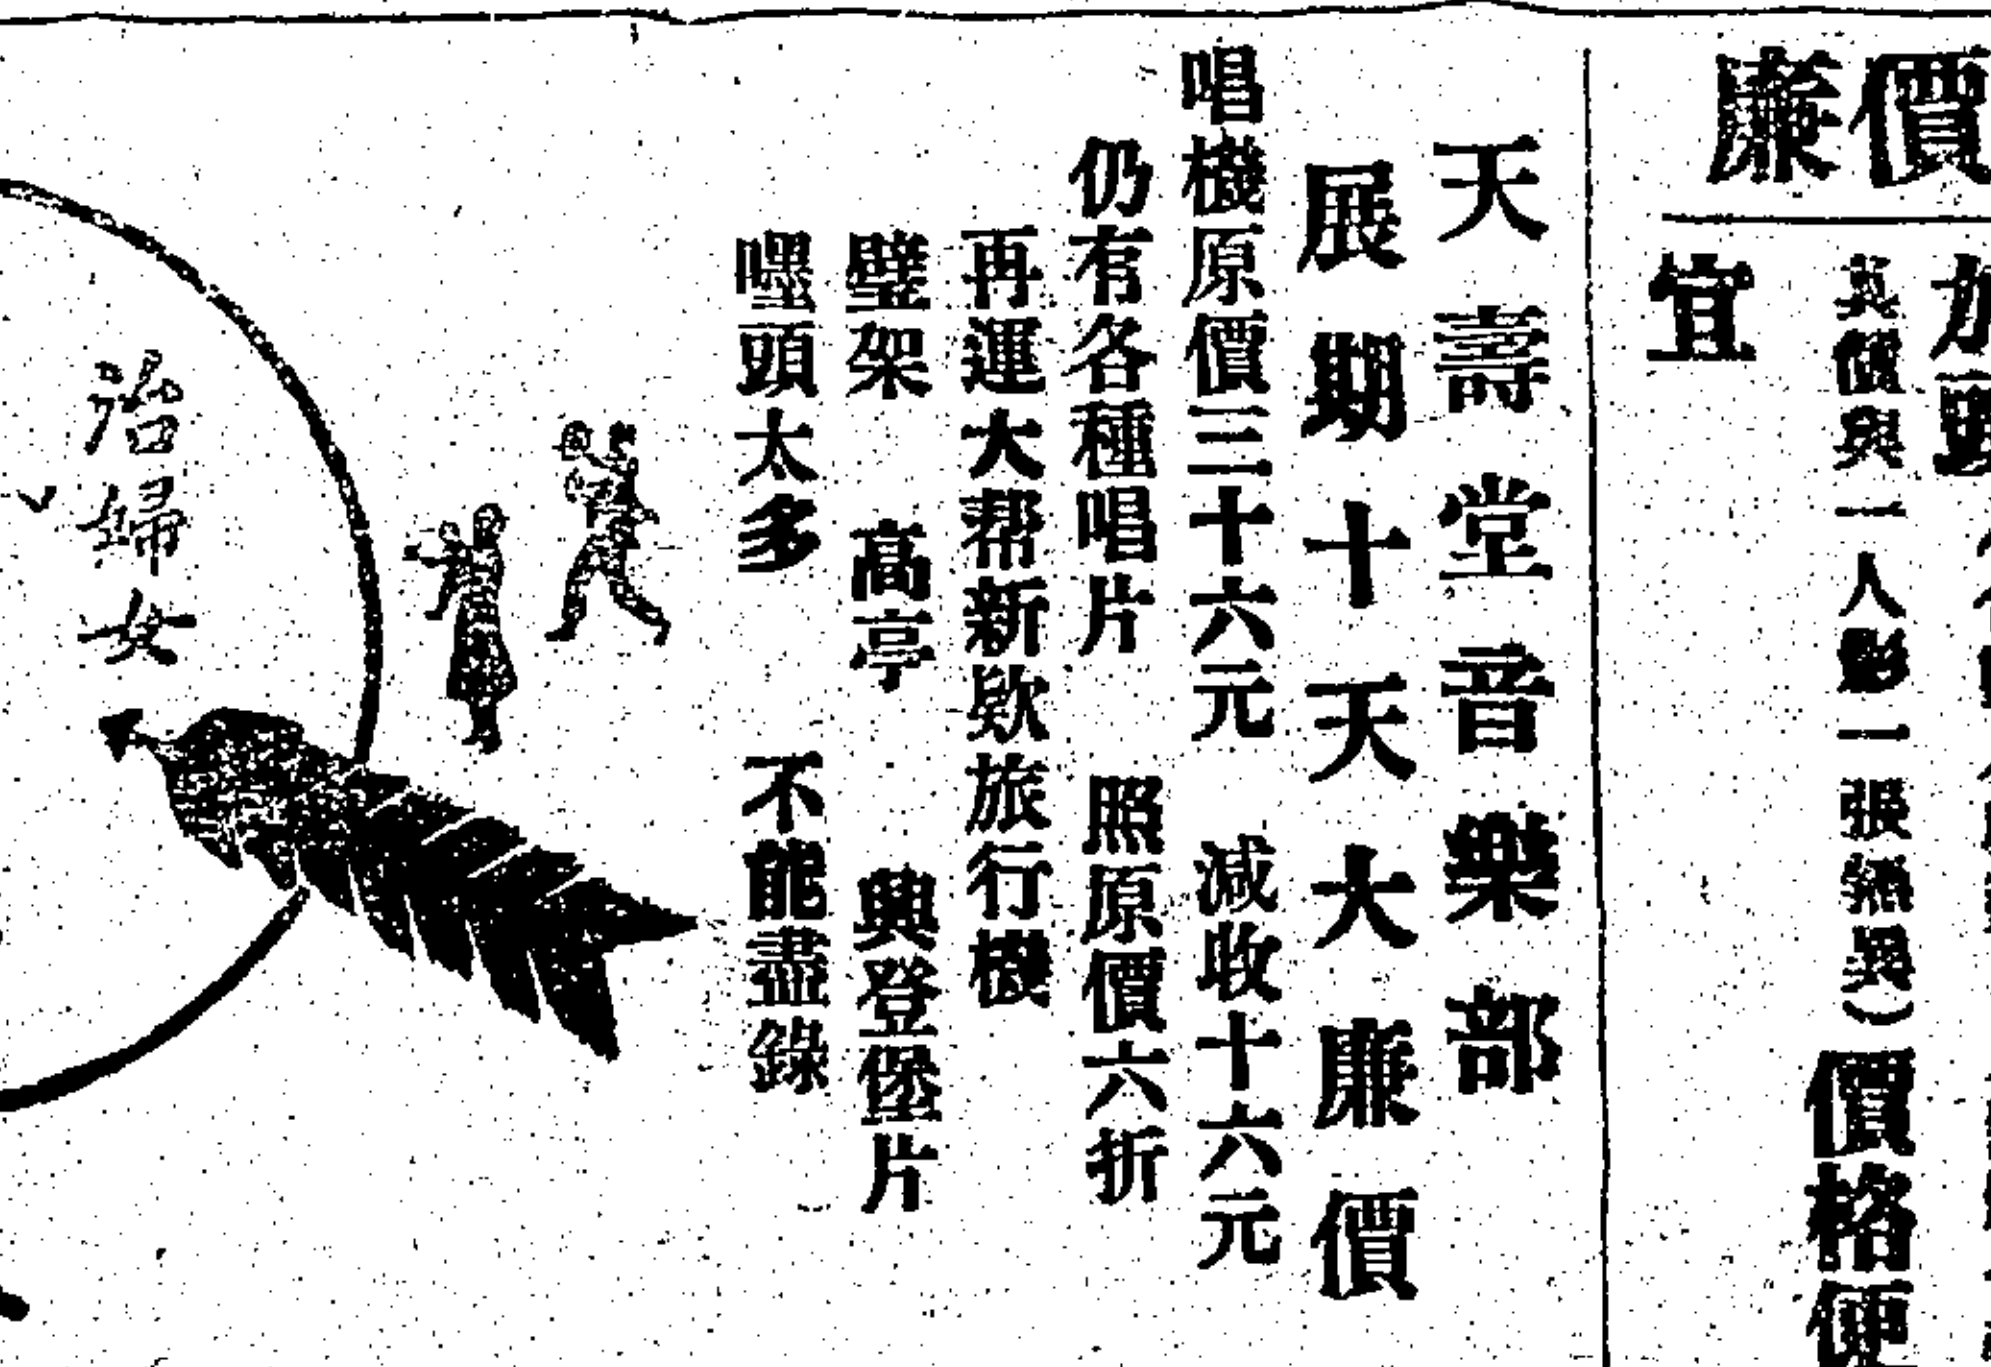 價廉
宜
真價與一人影一張
價格便
天壽堂音樂部
展期十天大廉價
唱機原價三十六元　減收十六元
仍有各種唱片　照原價六折
再運大帮新欵旅行機
璧架　高亭　興登堡片
嘿頭太多　不能盡錄
治婦女